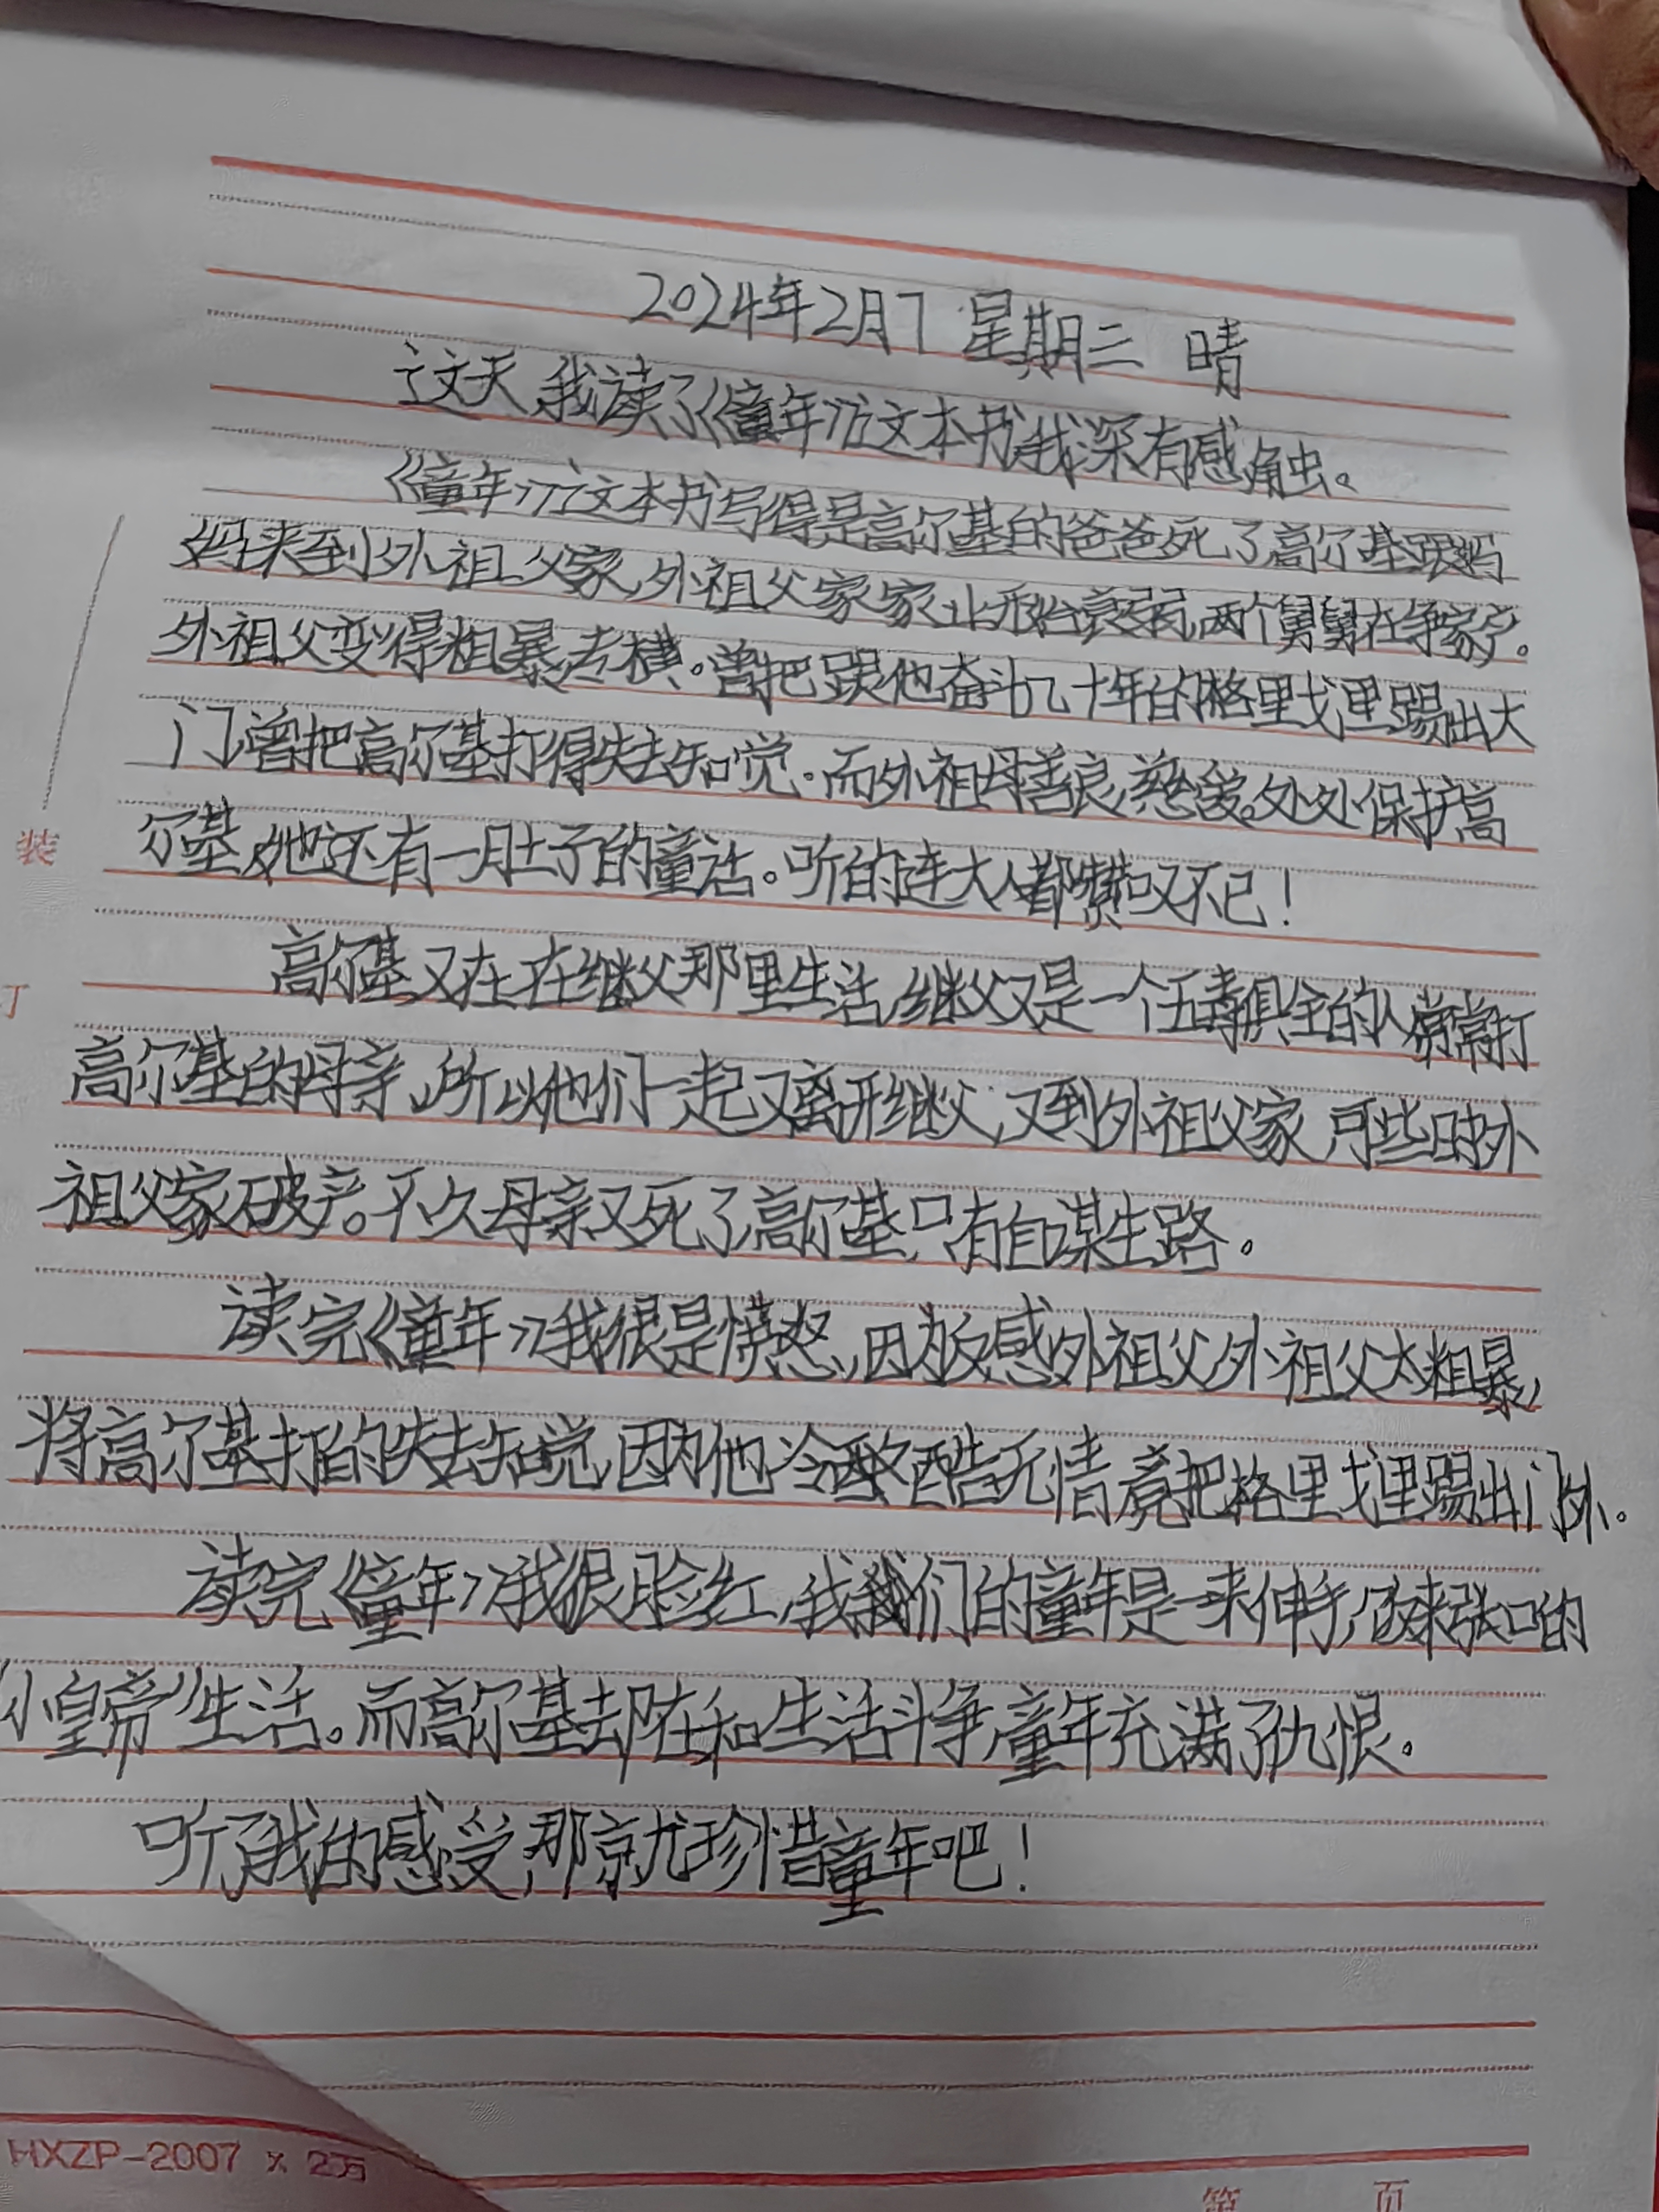 2024年2月7 星期三 晴
这天,我读了《童年》这本书,我深有感触。
《童年》这本书写得是高尔基的爸爸死了,高尔基跟妈
妈来到外祖父家,外祖父家家业开始衰弱,两个舅舅在争家产。
外祖父变得粗暴,专横。曾把跟他奋斗几十年的格里戈里踢出大
门,曾把高尔基打得失去知觉.而外祖母善良,慈爱。处处保护高
尔基,她还有一肚子的童话。听的连大人都赞叹不已!
高尔基又在在继父那里生活,继父又是一个五毒俱全的人,常常打
高尔基的母亲,所以他们一起又离开继父,又到外祖父家,可些时外
祖父家破产。不久母亲又死了,高尔基,只有自谋生路。
读完《童年》我很是愤怒,因为反感外祖父,外祖父太粗暴,
将高尔基打的失去知觉,因为他冷酷无情,竟把格里戈里踢出门外。
读完《童年》我很脸红,我我们的童年是一来伸手,饭来张口的
“小皇帝”生活。而高尔基却在和生活斗争,童年充满了仇恨。
听了我的感受,那就珍惜童年吧!
装
订
HXZP-2007 × 2万
第 页